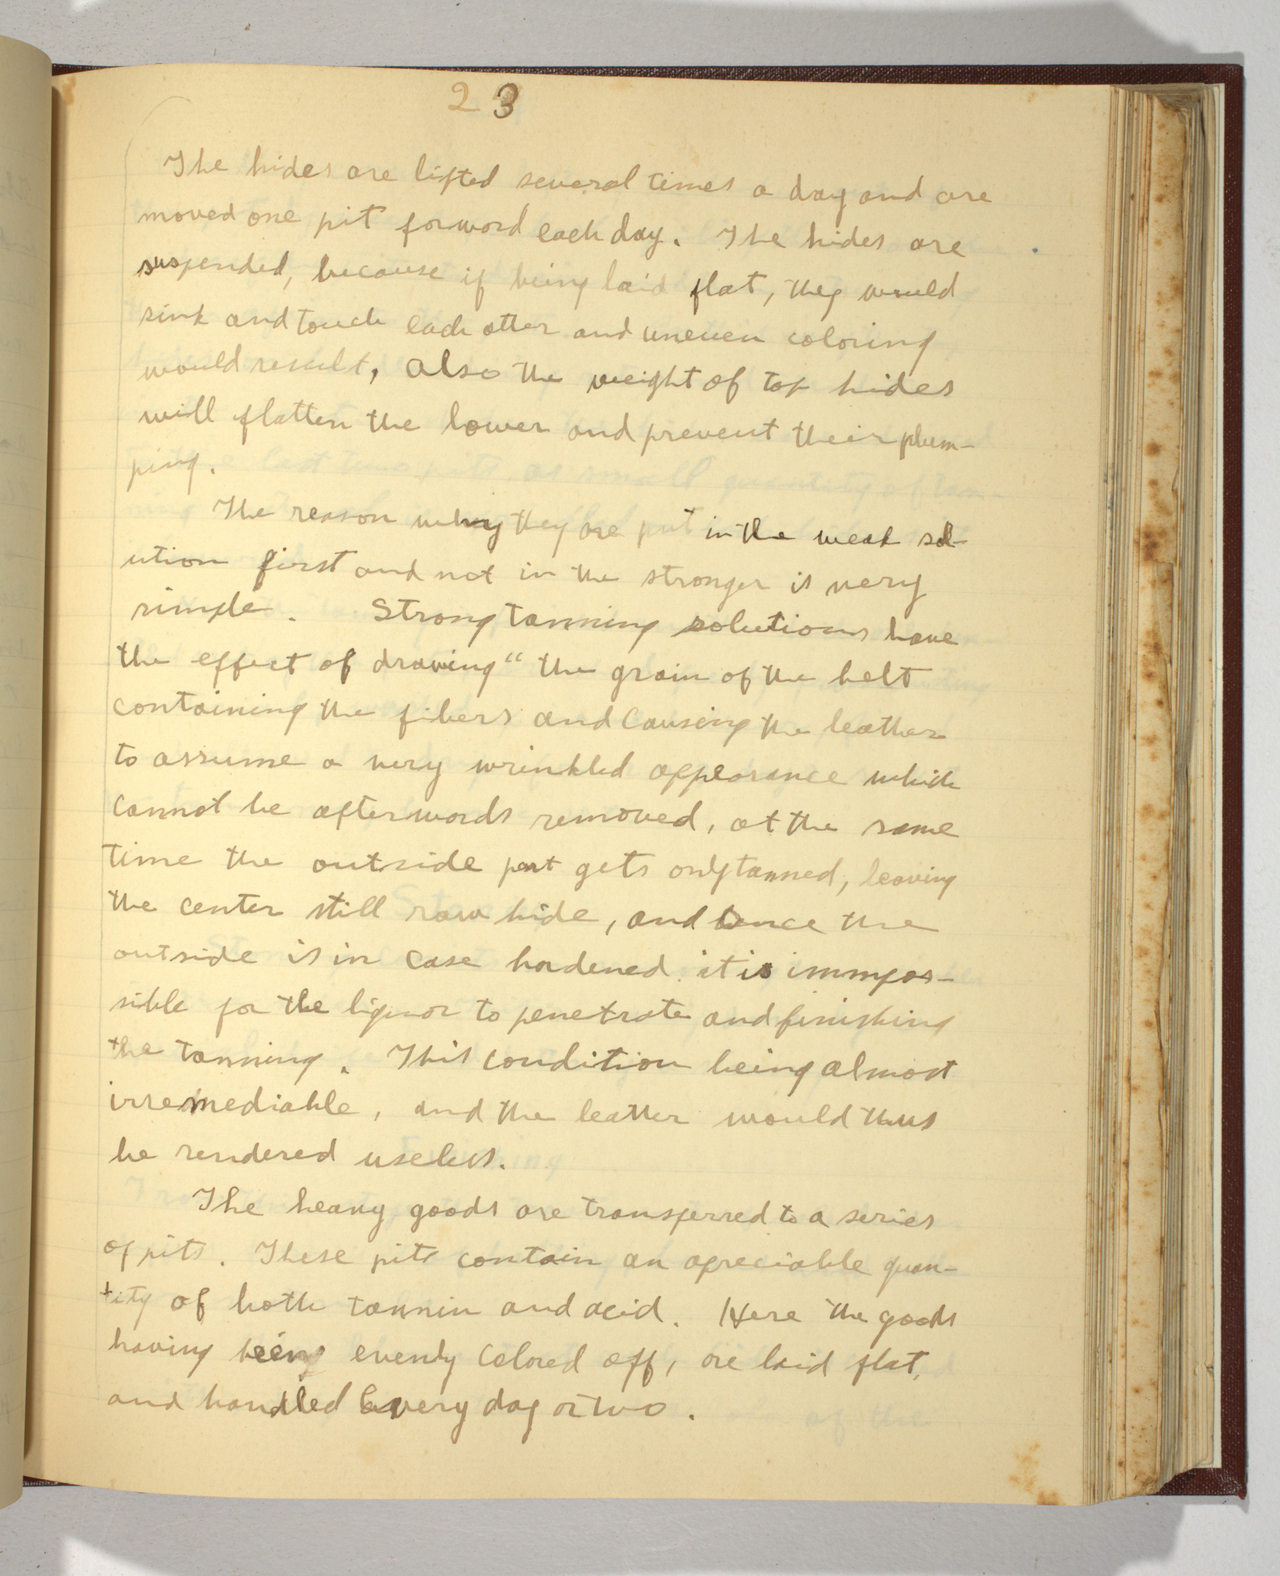 23
The hides are lifted several times a day and are
moved one pit forward each day. The hides are
suspended, because if being laid flat, they would
sink and touch each other and uneven coloring
would result, also the weight of top hides
will flatten the lower and prevent their plum-
ping.
The reason why they are put in the weak sol-
ution first and not in the stronger is very
simple. Strong tanning solutions have
the effect of drawing" the grain of the belt
containing the fibers and causing the leather
to assume a very wrinkled appearance which
cannot be afterwords removed, at the same
time the outside part gets only tanned, leaving
the center still raw hide, and once the
outside is in case hardened it is immpos-
sible for the liquor to penetrate and finishing
the tanning. This condition being almost
irremediable, and the leather would thus
be rendered useless.
The heavy goods are transferred to a series
of pits. These pits contain an apreciable quan-
tity of both tannin and acid. Here the goods
having been evenly colored off, are laid flat,
and handled every day or two.